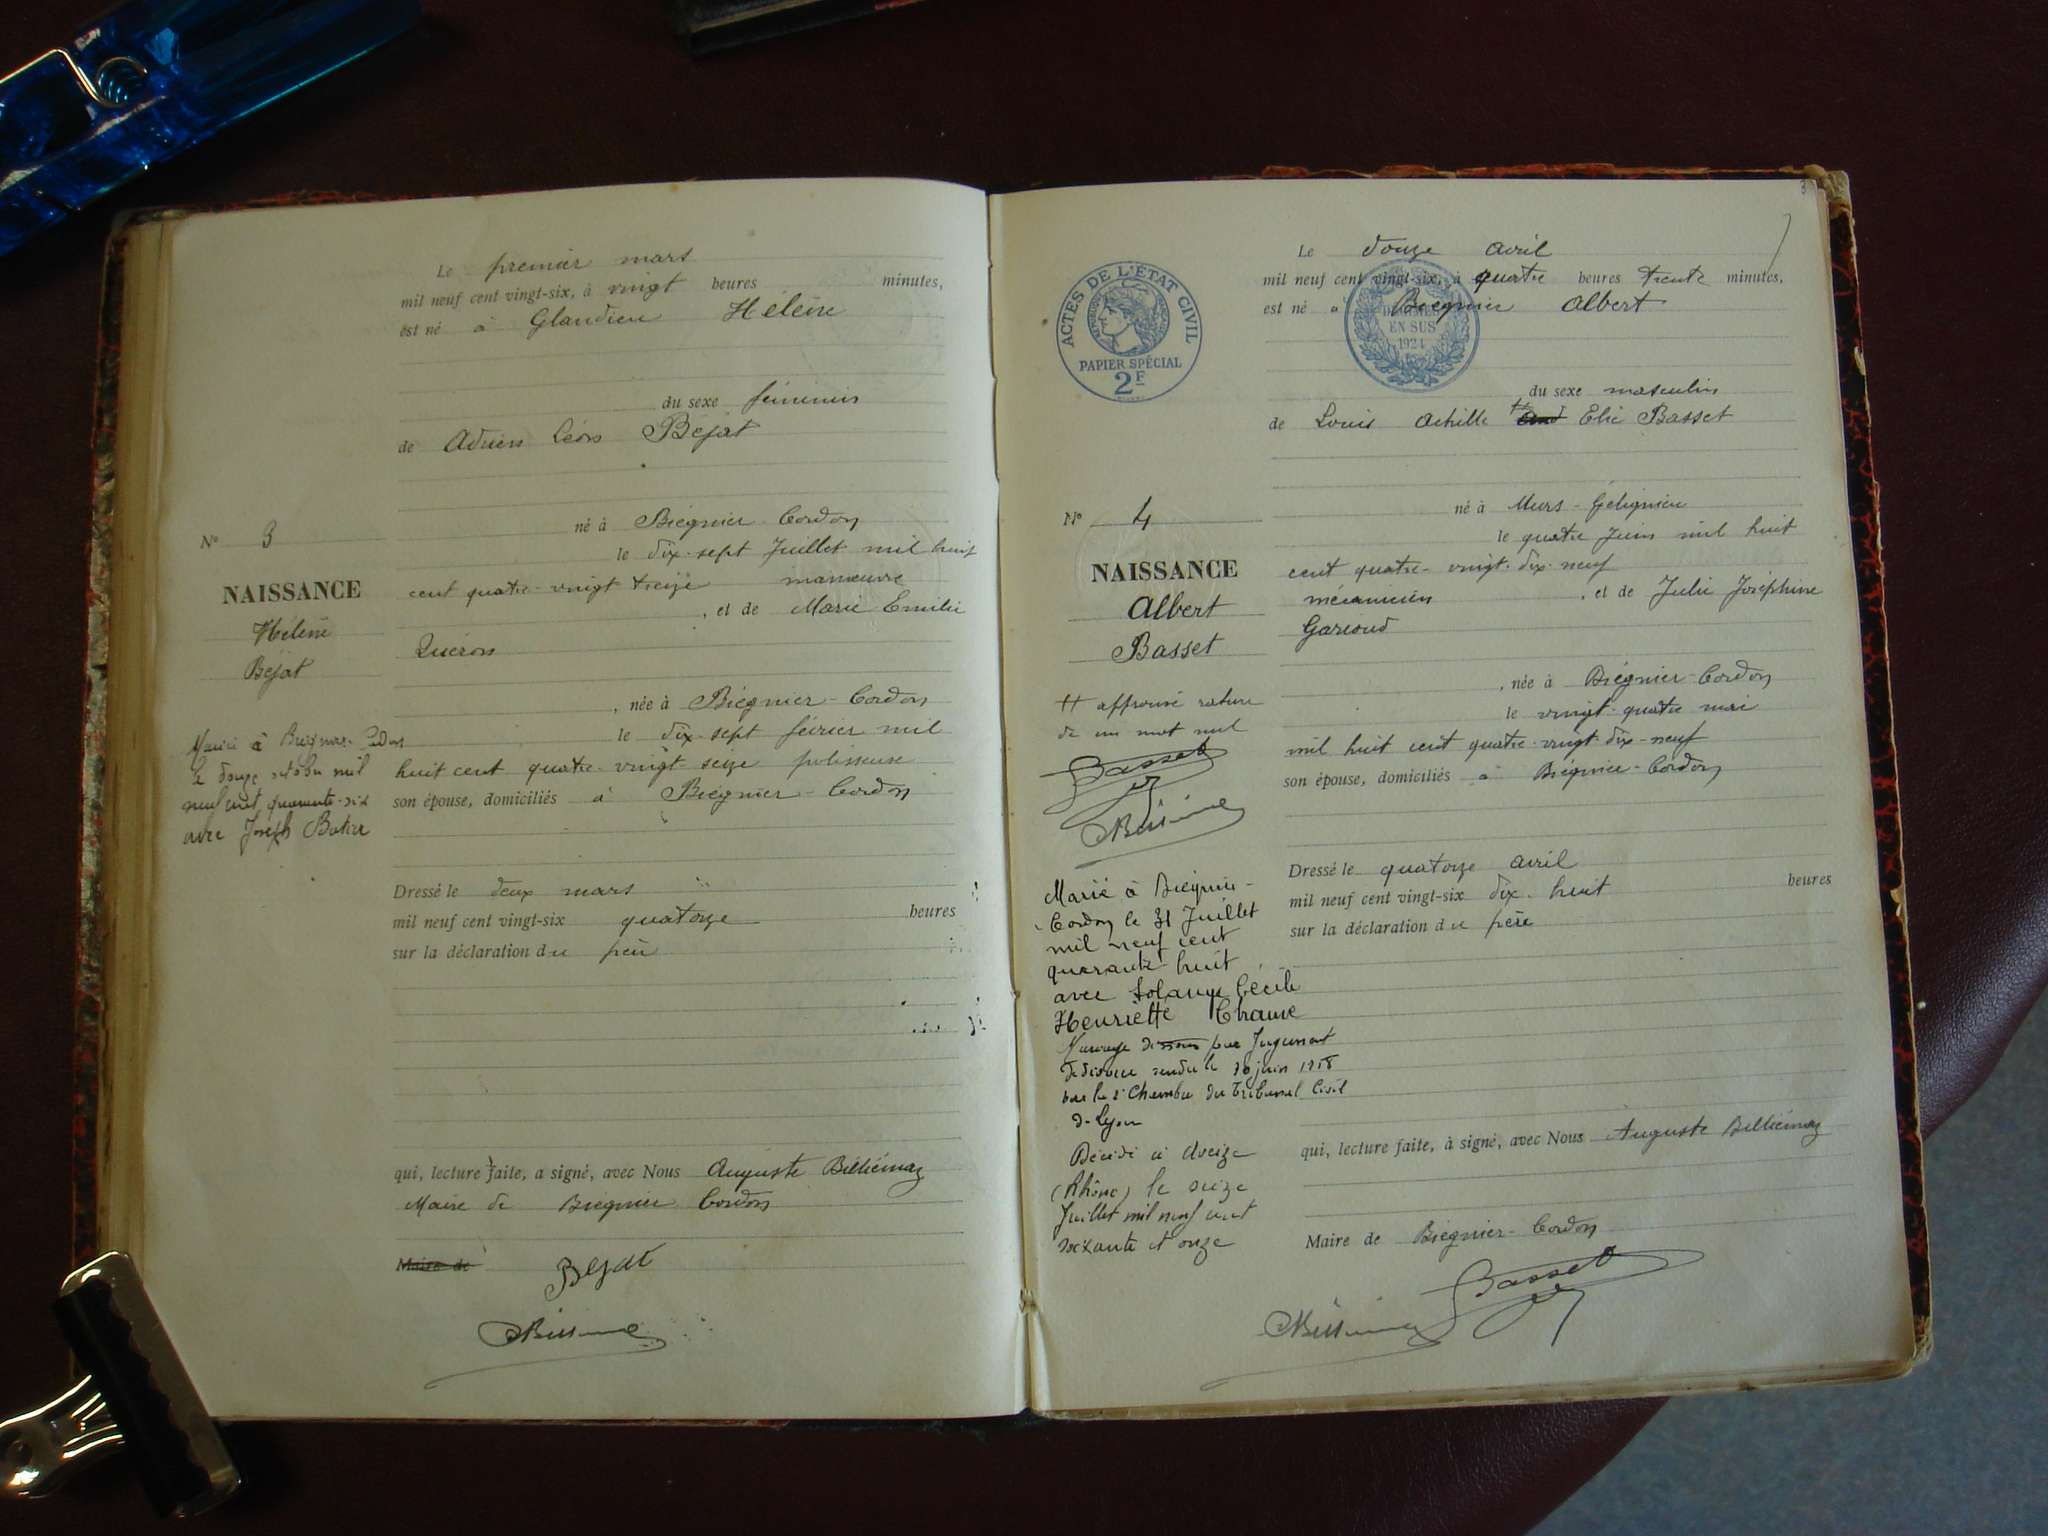 Le premier mars
mil neuf cent vingt-six, à vingt heures minutes,
est né à Glandieu Hélène
du sexe féminin
de Adrien Léon Béjat
né à Brégnier-Cordon
le dix-sept Juillet mil huit
cent quatre-vingt treize manœuvre
, et de Marie Emilie
, née à Brégnier-Cordon
le dix-sept février mil
huit cent quatre-vingt seize polisseuse
son épouse, domiciliés à Brégnier-Cordon
Dressé le deux mars
mil neuf cent vingt-six quatorze heures
sur la déclaration du père
qui, lecture faite, a signé, avec Nous Auguste Billiémaz
Maire de Brégnier Cordon
Maire de
Bejat
N° 3
NAISSANCE
Hélène
Béjat
Mariée à Brégnier-Cordon
le douze octobre mil
neuf cent quarante-six
avec Joseph
3
Le douze avril
mil neuf cent vingt-six, à quatre heures trente minutes,
est né à Brégnier Albert
du sexe masculin
de Louis Achille # Elie Basset
né à Murs-Gélignieu
le quatre Juin mil huit
cent quatre-vingt-dix-neuf
mécanicien , et de Julie Joséphine
, née à Brégnier-Cordon
le vingt-quatre mai
mil huit cent quatre-vingt-dix-neuf
son épouse, domiciliés à Brégnier-Cordon
Dressé le quatorze avril
mil neuf cent vingt-six dix-huit heures
sur la déclaration du père
qui, lecture faite, à signé, avec Nous Auguste Billiémaz
Maire de Brégnier-Cordon
Basset
ACTES DE L'ÉTAT CIVIL
PAPIER SPÉCIAL
2F
EN SUS
1924
N° 4
NAISSANCE
Albert
Basset
# approuvé rature
de un mot nul
Basset
Marié à Brégnier-
Cordon le 31 Juillet
mil neuf cent
quarante huit
avec Solange Cécile
Henriette
Mariage dissous par Jugement
de divorce rendu le juin
par la 2e Chambre du Tribunal Civil
de Lyon
Décédé à
(Rhône) le seize
Juillet mil neuf cent
soixante et onze